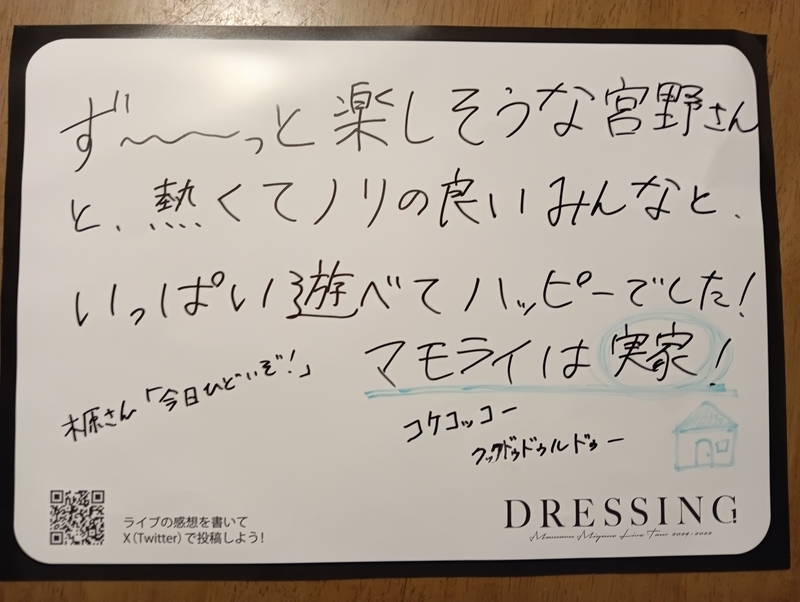 ず〜〜〜っと楽しそうな宮野さん
と、熱くてノリの良いみんなと、
いっぱい遊べてハッピーでした!
マモライは実家!
梶原さん「今日ひどいぞ!」
コケコッコー
クックドゥドゥルドゥー
ライブの感想を書いて
X(Twitter)で投稿しよう!
DRESSING!
Mamoru Miyano Live Tour 2024-2025